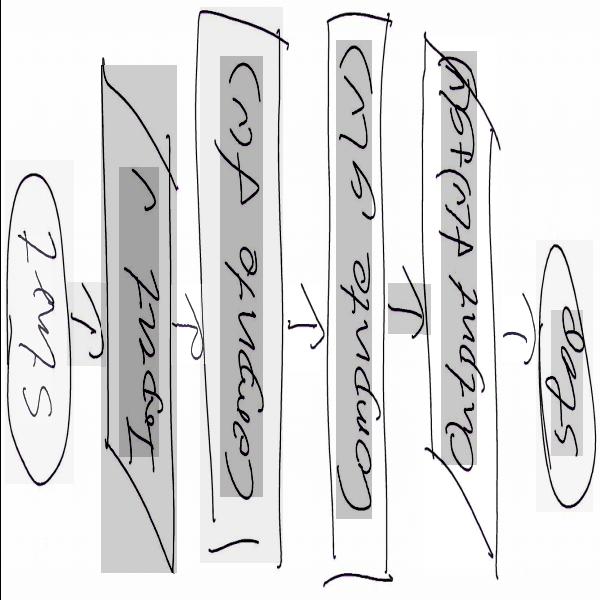 Start
Input n
Compute f(n)
Compute g(n)
Output f(n)+g(n)
Stop